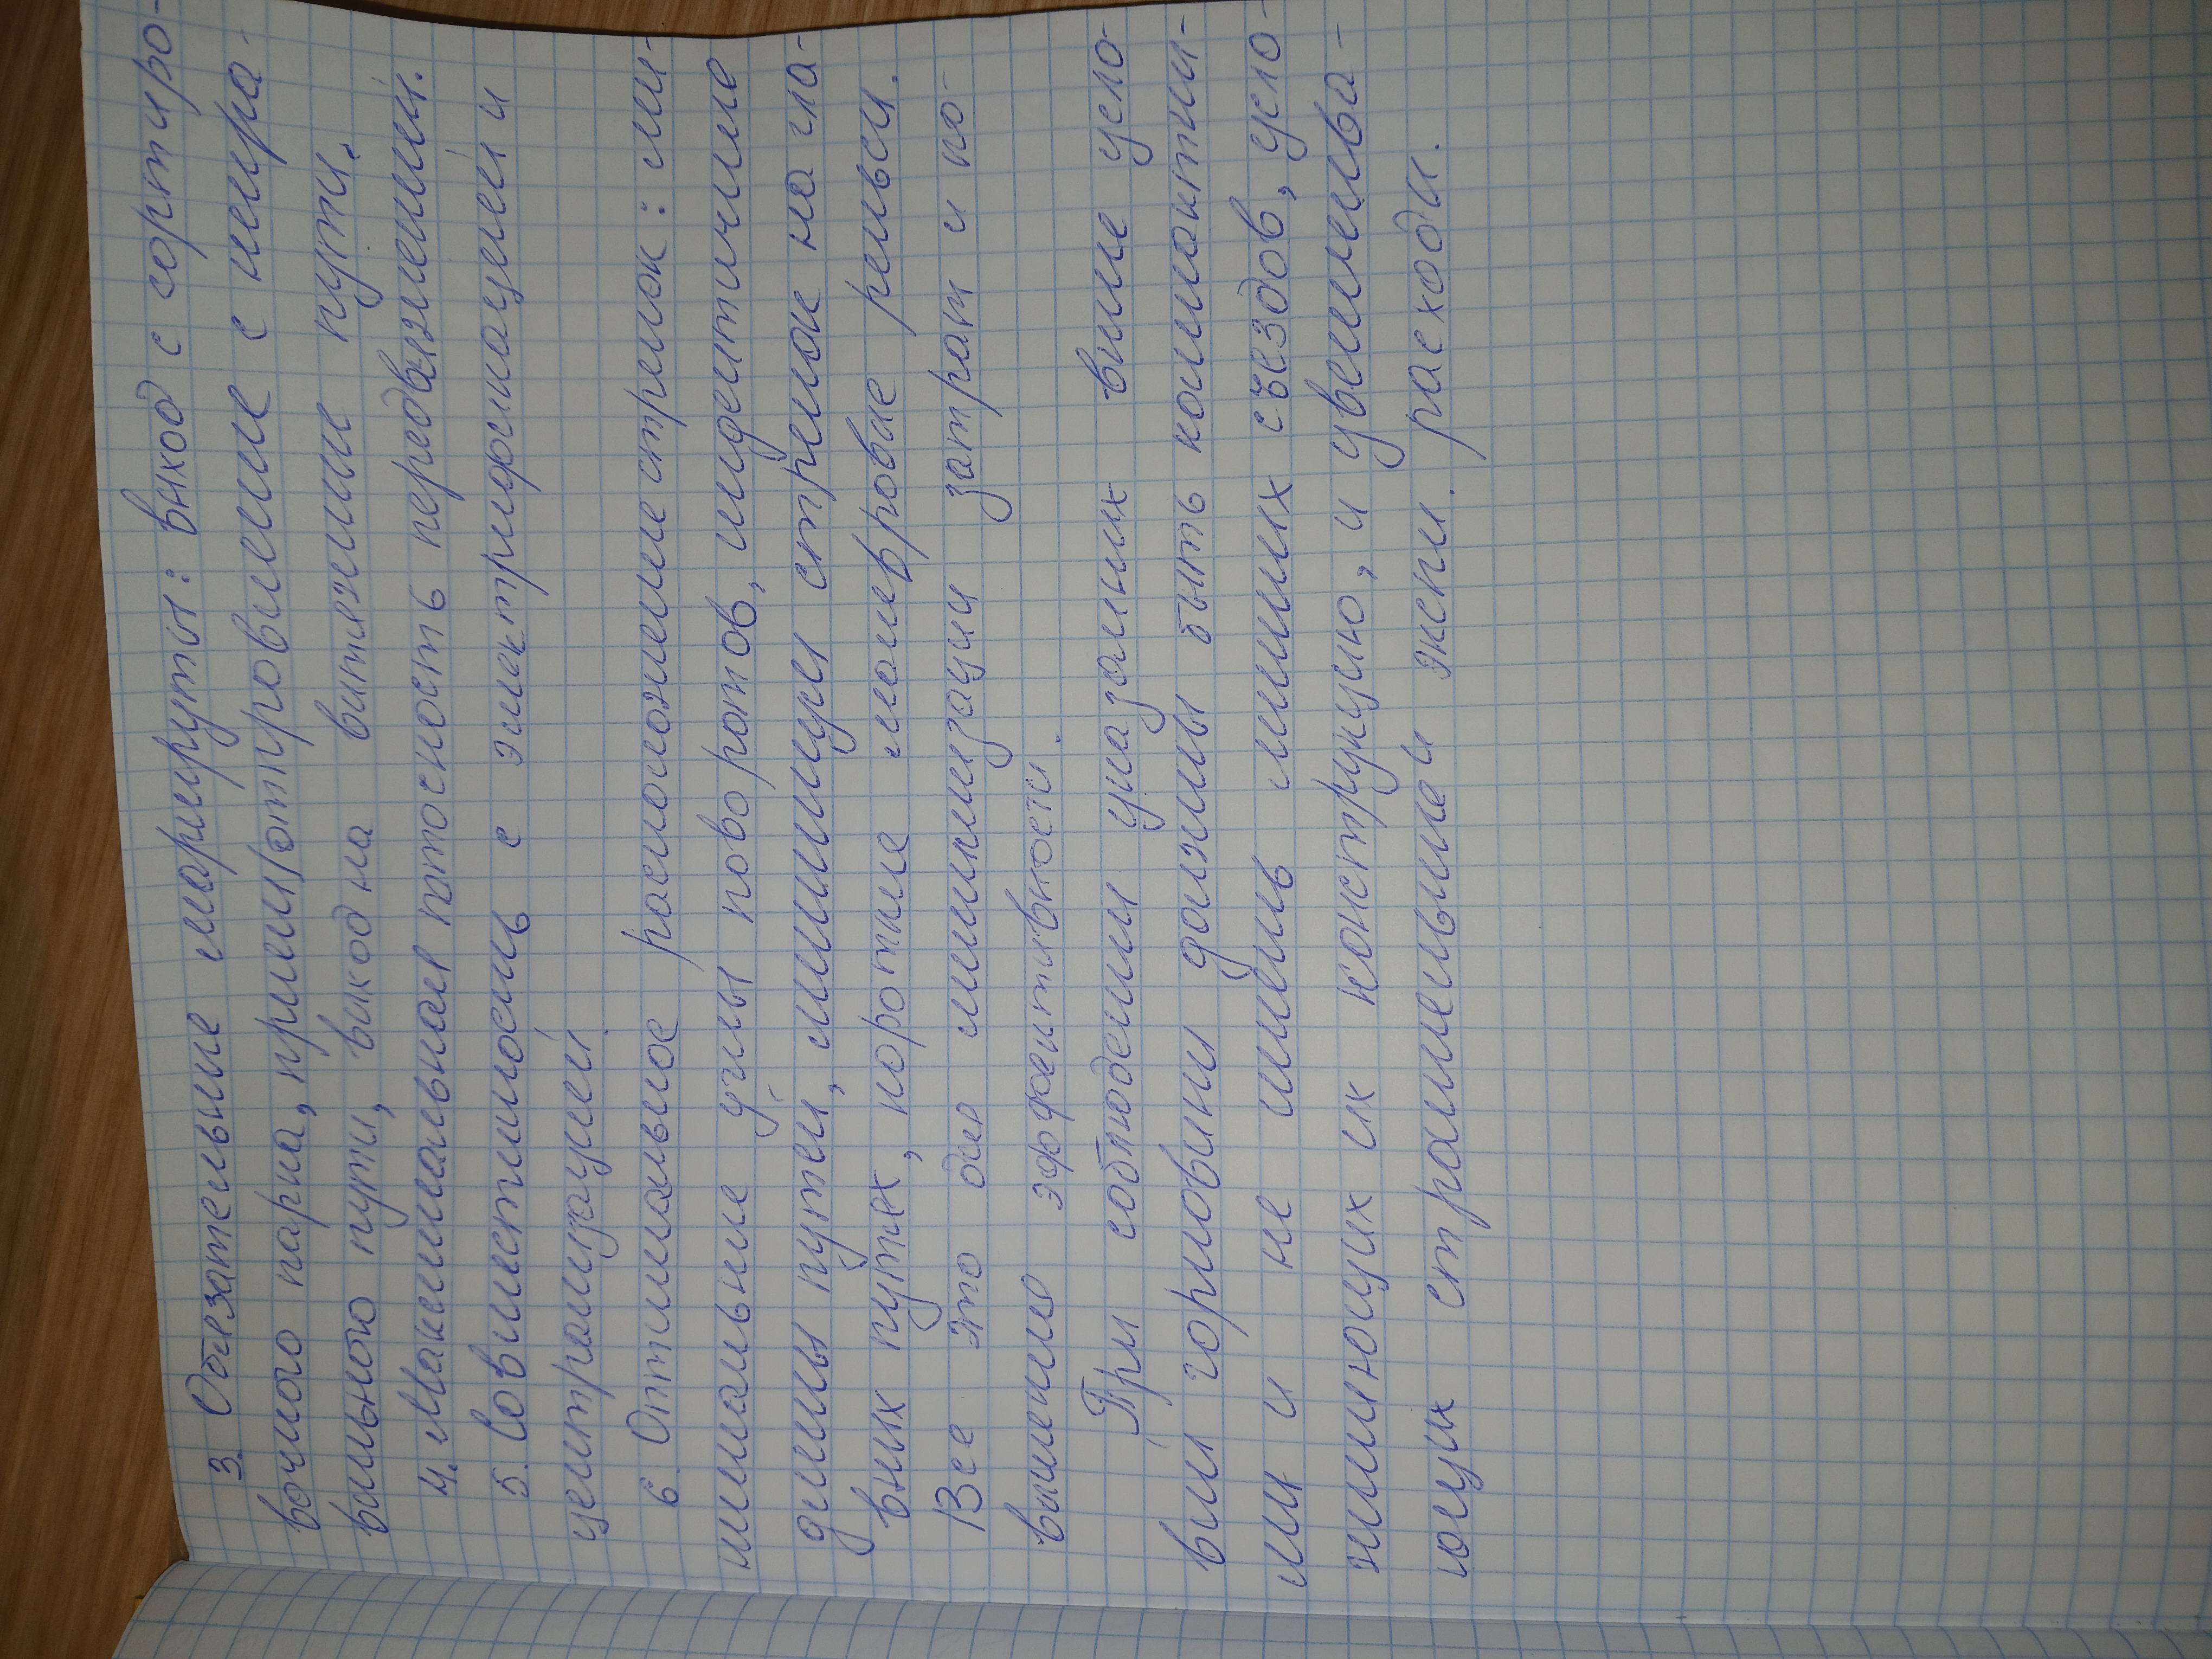 3. Обязательные маршруты: выход с сортиро-
вочного парка, прием/отправление с непра-
вильного пути, выход на вытяжные пути.
4. Максимальная поточность передвижений.
5. Совместимость с электрической
централизацией.
6. Оптимальное расположение стрелок: ми-
нимальные углы поворотов, идентичные
длины путей, минимум стрелок на гла-
вных путях, короткие межевровые рельсы.
Все это для минимизации затрат и по-
вышению эффективности.
При соблюдении указанных выше усло-
вий горловины должны быть компактны-
ми и не иметь лишних съездов, усло-
жняющих их конструкцию, и увеличива-
ющих строительные и экспл. расходы.